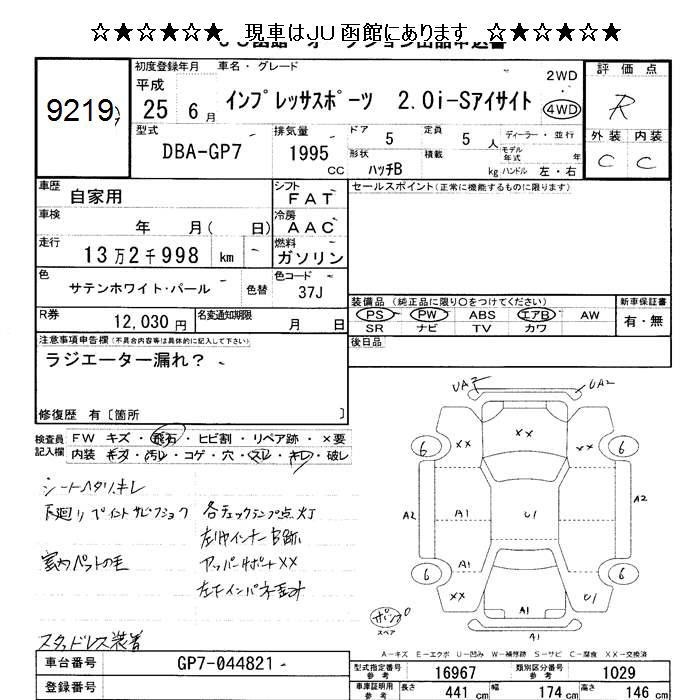 ☆★☆★☆★ 現車はJU函館にあります ☆★☆★☆★
9219
初度登録年月 車名・グレード 2WD 評価点
平成 25年 6月 インプレッサスポーツ 2.0i-Sアイサイト 4WD R
型式 排気量 ドア 定員 ディーラー・並行 外装 内装
DBA-GP7 1995 CC 5 5人 モデル年式 年 C C
形状 ハッチB 積載 kg ハンドル 左・右
車歴 自家用 シフト FAT セールスポイント(正常に機能するものに限ります)
車検 年 月( 日) 冷房 AAC
走行 13万2千998 km 燃料 ガソリン
色 サテンホワイト・パール 色替 色コード 37J
装備品 (純正品に限り○をつけてください) 新車保証書
PS PW ABS エアB AW 有・無
SR ナビ TV カワ
R券 12,030円 名変通知期限 月 日
後日品
注意事項申告欄(不具合内容等は具体的に記入して下さい)
ラジエーター漏れ?
修復歴 有[箇所 ]
検査員記入欄 FW キズ・飛石・ヒビ割・リペア跡・×要
内装 キズ・汚レ・コゲ・穴・スレ・キレ・破レ
シートヘタリ、キレ
各チェックランプ点灯
室内ペットの毛
アッパーサポートXX
スタッドレス装着
UA2
XX XX XX
6 6
A2 A1 U1 A1 A2
6 6
XX U1
A1
スペア
A-キズ E-エクボ U-凹み W-補修跡 S-サビ C-腐食 XX-交換済
車台番号 GP7-044821
型式指定番号 参考 16967 類別区分番号 参考 1029
登録番号
車庫証明用 参考 長さ 441 cm 幅 174 cm 高さ 146 cm